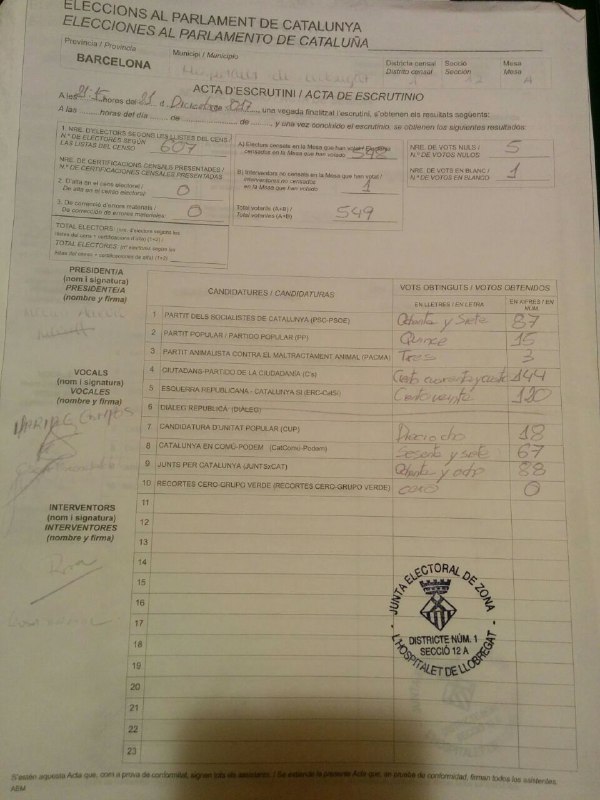 ELECCIONS AL PARLAMENT DE CATALUNYA
ELECCIONES AL PARLAMENTO DE CATALUÑA
Provincia / Provincia
Municipi / Municipio
Districte censal
Distrito censal
Secció
Sección
Mesa
Mesa
BARCELONA
1 12 A
ACTA D'ESCRUTINI / ACTA DE ESCRUTINIO
A les hores del 21 de 2017, una vegada finalitzat l'escrutini, s'obtenen els resultats següents:
A las horas del día de de , y una vez concluido el escrutinio, se obtienen los siguientes resultados:
1. NRE. D'ELECTORS SEGONS LES LLISTES DEL CENS /
N.º DE ELECTORES SEGÚN
LAS LISTAS DEL CENSO 607
NRE. DE CERTIFICACIONS CENSALS PRESENTADES /
N.º DE CERTIFICACIONES CENSALES PRESENTADAS
2. D'alta en el cens electoral /
De alta en el censo electoral: 0
3. De correcció d'errors materials /
De corrección de errores materiales: 0
TOTAL ELECTORS
TOTAL ELECTORES
A) Electors censats en la Mesa que han votat / Electores
censados en la Mesa que han votado 548
B) Interventors no censats en la Mesa que han votat /
Interventores no censados
en la Mesa que han votado 1
Total votants (A+B) /
Total votantes (A+B) 549
NRE. DE VOTS NULS /
N.º DE VOTOS NULOS 5
NRE. DE VOTS EN BLANC /
N.º DE VOTOS EN BLANCO 1
PRESIDENT/A
(nom i signatura)
PRESIDENTE/A
(nombre y firma)
VOCALS
(nom i signatura)
VOCALES
(nombre y firma)
INTERVENTORS
(nom i signatura)
INTERVENTORES
(nombre y firma)
CANDIDATURES / CANDIDATURAS
VOTS OBTINGUTS / VOTOS OBTENIDOS
EN LLETRES / EN LETRA
EN XIFRES / EN NÚM.
1 PARTIT DELS SOCIALISTES DE CATALUNYA (PSC-PSOE) Ochenta y Siete 87
2 PARTIT POPULAR / PARTIDO POPULAR (PP) Quince 15
3 PARTIT ANIMALISTA CONTRA EL MALTRACTAMENT ANIMAL (PACMA) Tres 3
4 CIUTADANS-PARTIDO DE LA CIUDADANÍA (C's) Ciento cuarenta y cuatro 144
5 ESQUERRA REPUBLICANA - CATALUNYA SÍ (ERC-CatSí) Ciento veinte 120
6 DIÀLEG REPUBLICÀ (DIÀLEG)
7 CANDIDATURA D'UNITAT POPULAR (CUP) Dieciocho 18
8 CATALUNYA EN COMÚ-PODEM (CatComú-Podem) Sesenta y siete 67
9 JUNTS PER CATALUNYA (JUNTSxCAT) Ochenta y ocho 88
10 RECORTES CERO-GRUPO VERDE (RECORTES CERO-GRUPO VERDE) cero 0
11
12
13
14
15
16
17
18
19
20
21
22
23
JUNTA ELECTORAL DE ZONA
DISTRICTE NÚM. 1
SECCIÓ 12 A
L'HOSPITALET DE LLOBREGAT
S'estén aquesta Acta que, com a prova de conformitat, signen tots els assistents. / Se extiende la presente Acta que, en prueba de conformidad, firman todos los asistentes.
AEM